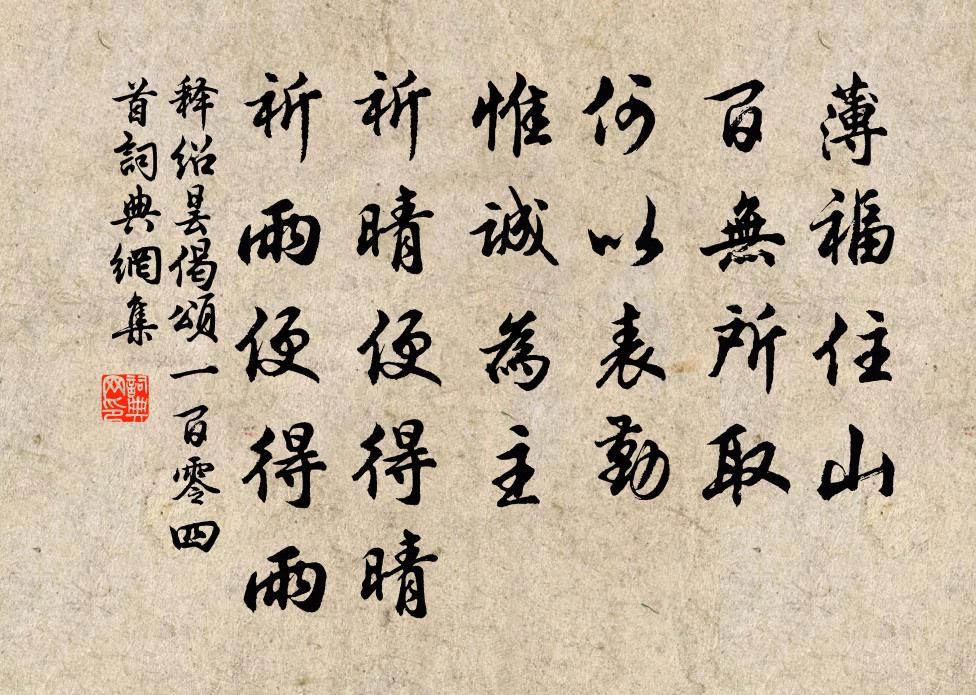 薄福住山
百無所取
何以表勤
惟誠為主
祈晴便得晴
祈雨便得雨
释绍昙偈頌一百零四
首詞典網集
詞典
网印